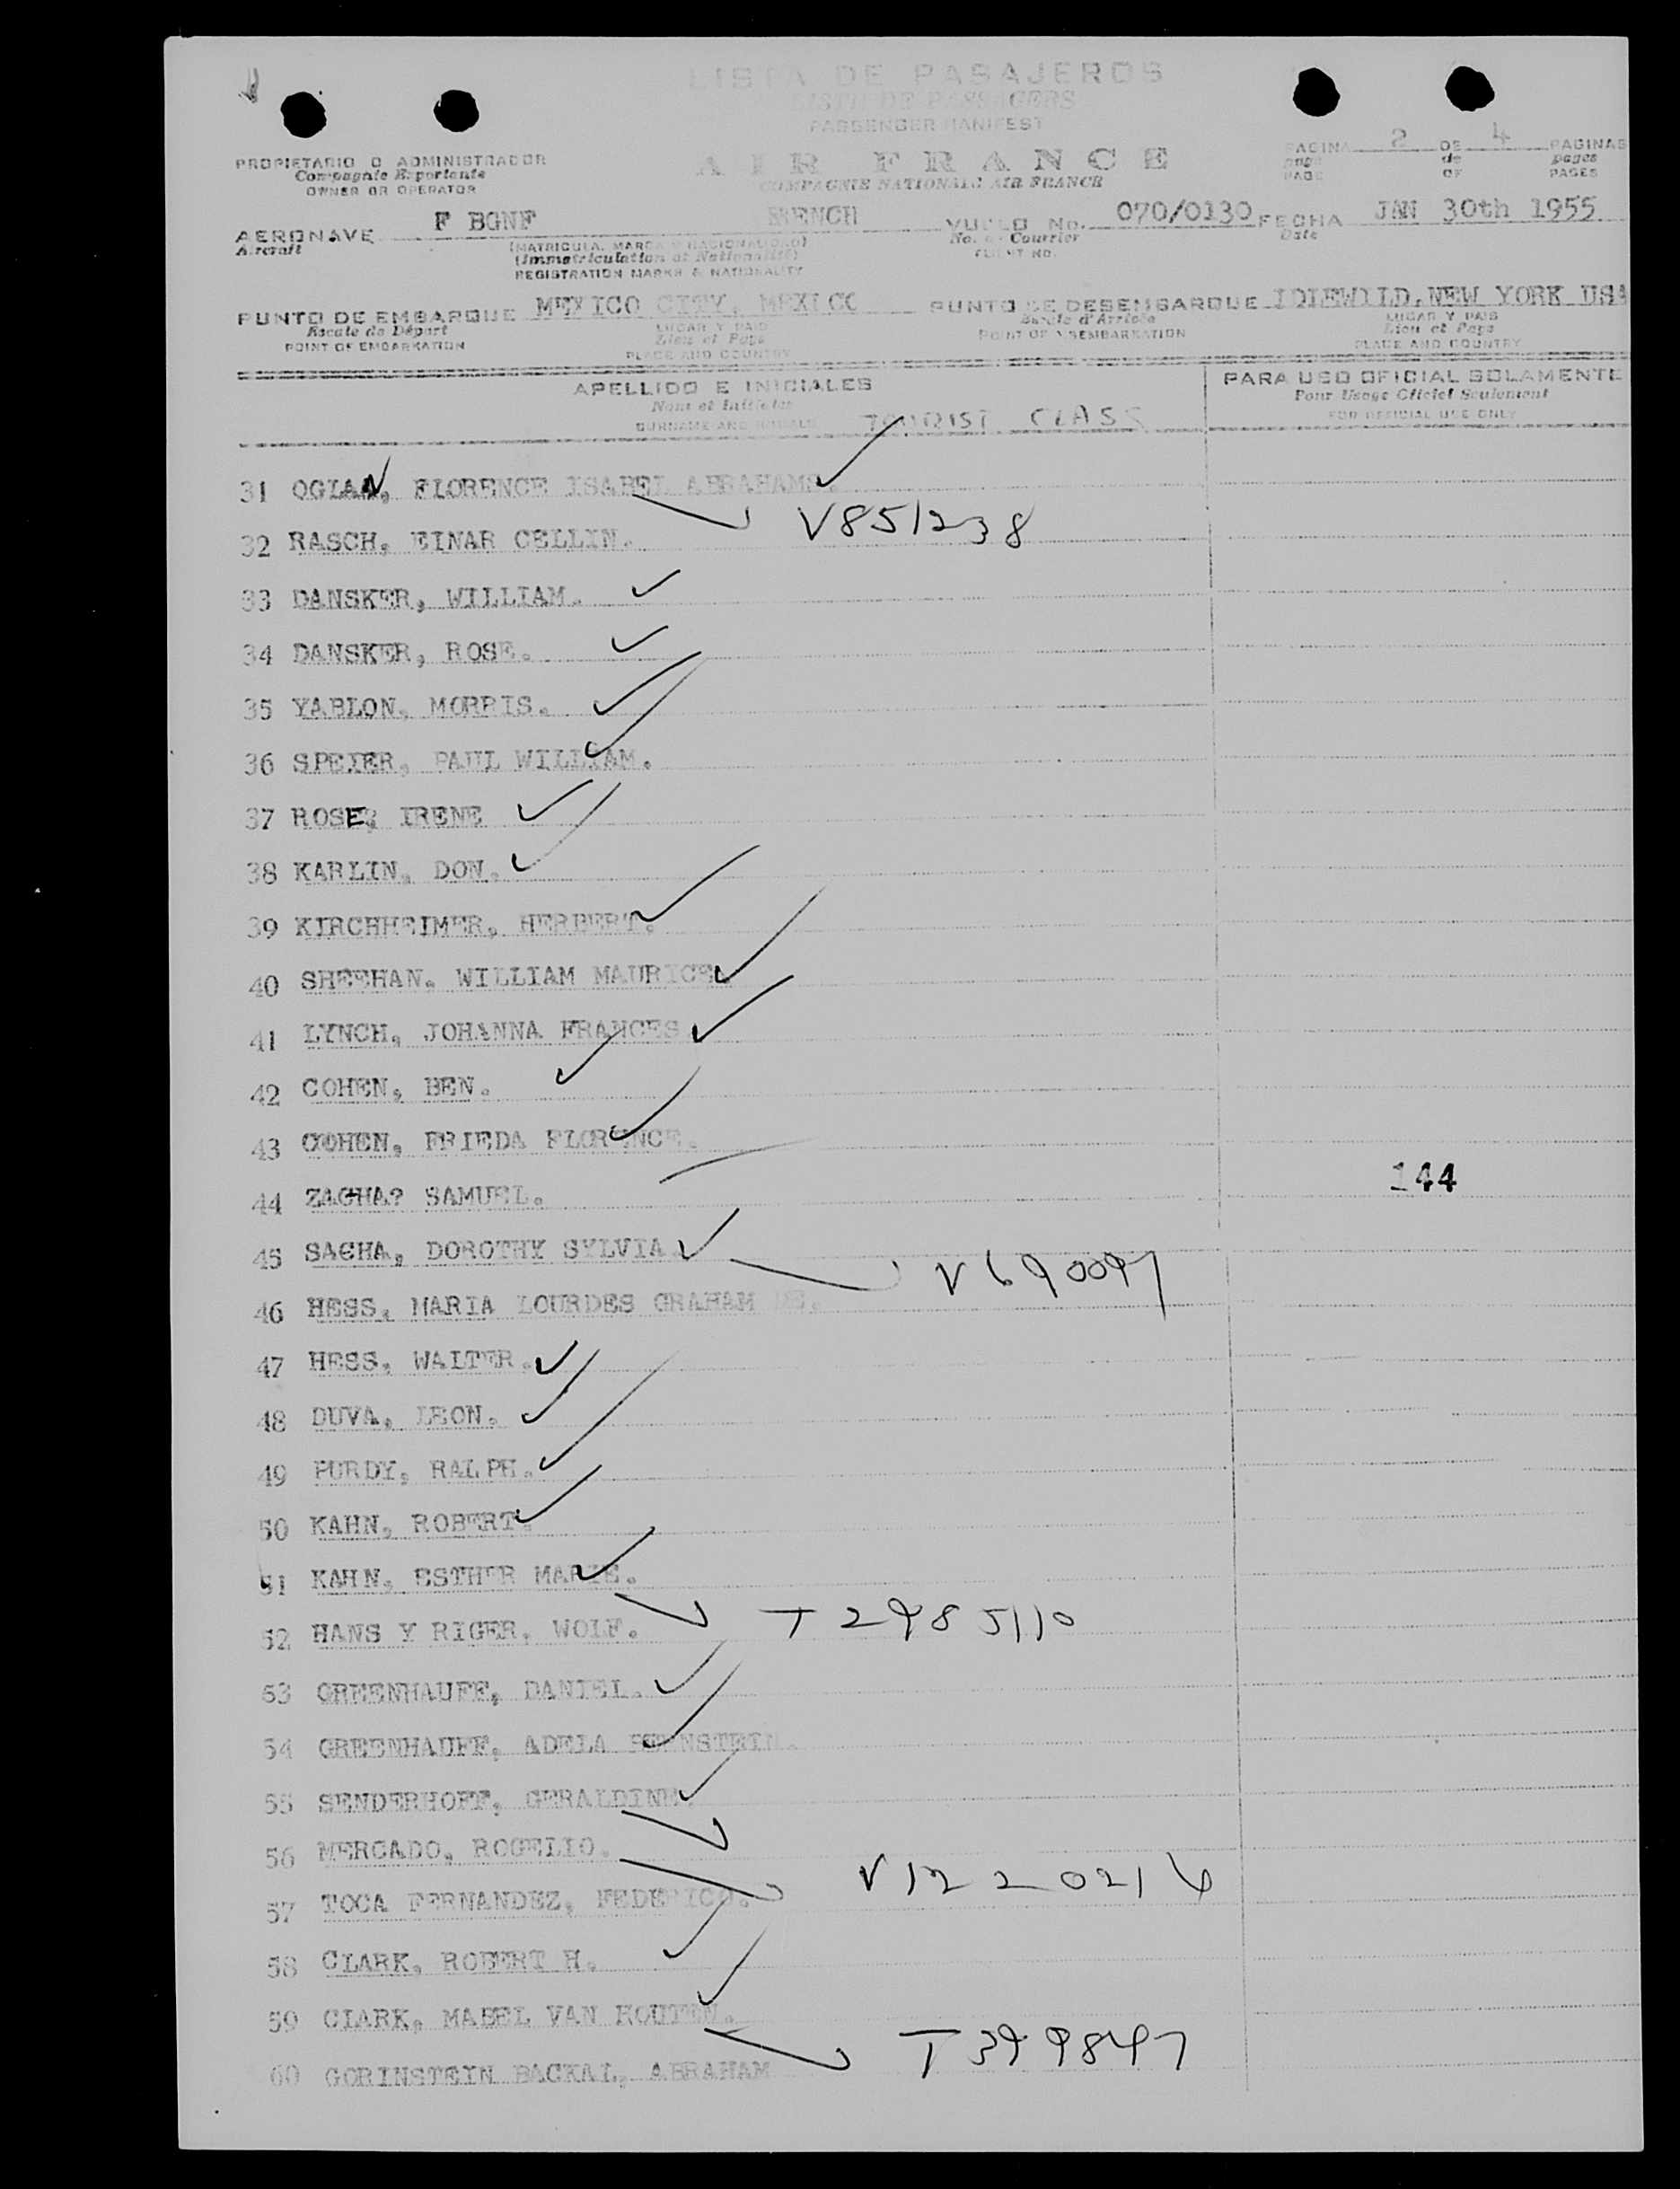 LISTA DE PASAJEROS
LISTE DE PASSAGERS
PASSENGER MANIFEST
PROPIETARIO O ADMINISTRADOR
Compagnie Exportante
OWNER OR OPERATOR
AIR FRANCE
COMPAGNIE NATIONALE AIR FRANCE
PAGINA 2 DE 4 PAGINAS
page de pages
PAGE OF PAGES
AERONAVE F BGNF FRENCH VUELO No. 070/0130 FECHA JAN 30th 1955
Aircraft (MATRICULA, MARCA Y NACIONALIDAD) No. Courrier Date
(Immatriculation et Nationalité) FLIGHT NO.
REGISTRATION MARKS & NATIONALITY
PUNTO DE EMBARQUE MEXICO CITY, MEXICO PUNTO DE DESEMBARQUE IDLEWILD, NEW YORK USA
Escale de Départ LUGAR Y PAIS Escale d'Arrivée LUGAR Y PAIS
POINT OF EMBARKATION Lieu et Pays POINT OF DISEMBARKATION Lieu et Pays
PLACE AND COUNTRY PLACE AND COUNTRY
APELLIDO E INICIALES PARA USO OFICIAL SOLAMENTE
Nom et Initiales Pour Usage Officiel Seulement
SURNAME AND INITIALS TOURIST CLASS FOR OFFICIAL USE ONLY
31 OGLAN, FLORENCE ISABEL ABRAHAMS.
32 RASCH, EINAR CELLIN. V851238
33 DANSKER, WILLIAM.
34 DANSKER, ROSE.
35 YABLON, MORRIS.
36 SPEIER, PAUL WILLIAM.
37 ROSE, IRENE
38 KARLIN, DON.
39 KIRCHHEIMER, HERBERT.
40 SHEEHAN, WILLIAM MAURICE.
41 LYNCH, JOHANNA FRANCES
42 COHEN, BEN.
43 COHEN, FRIEDA FLORENCE.
44 ZACHA? SAMUEL. 144
45 SACHA, DOROTHY SYLVIA.
46 HESS, MARIA LOURDES GRAHAM DE. V690097
47 HESS, WALTER.
48 DUVA, LEON.
49 PURDY, RALPH.
50 KAHN, ROBERT.
51 KAHN, ESTHER MARIE.
52 HANS Y RIGER, WOLF. T2985110
53 GREENHAUFF, DANIEL.
54 GREENHAUFF, ADELA BERNSTEIN.
55 SENDERHOFF, GERALDINE.
56 MERCADO, ROGELIO.
57 TOCA FERNANDEZ, FEDERICO. V1220216
58 CLARK, ROBERT H.
59 CLARK, MABEL VAN HOUTEN.
60 GORINSTEIN BACKAL, ABRAHAM T399847